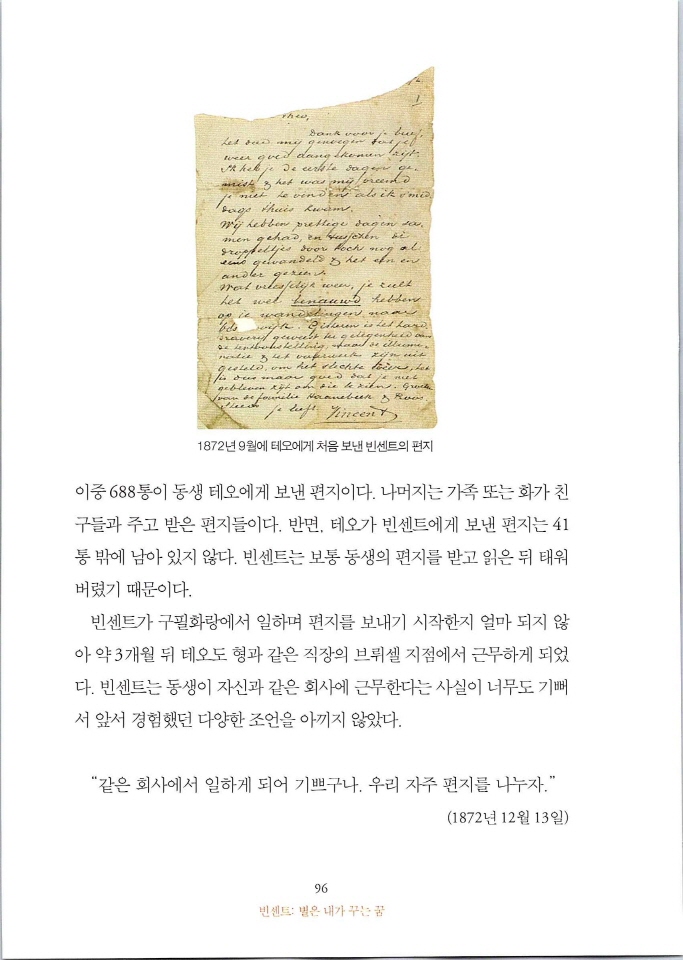 1
Theo,
Dank voor je brief,
het deed mij genoegen dat je
weer goed aangekomen zijt.
Ik heb je de eerste dagen ge-
mist & het was mij vreemd
je niet te vinden als ik s'mid
dags thuis kwam.
Wij hebben prettige dagen sa-
men gehad, en tusschen de
droppeltjes door toch nog al
eens gewandeld & het een en
ander gezien.
Wat vreesselijk weer, je zult
het wel benauwd hebben
op je wandelingen naar
Gisteren is het hard
draverij geweest ter gelegenheid van
de tentoonstelling, maar de illumi-
natie & het vuurwerk zijn uit
gesteld, om het slechte weer, het
is dus maar goed dat je niet
gebleven zijt om die te zien. Groete
van de familie Haanebeek & Roos
steeds
je liefh.
Vincent
1872년 9월에 테오에게 처음 보낸 빈센트의 편지
이중 688통이 동생 테오에게 보낸 편지이다. 나머지는 가족 또는 화가 친
구들과 주고 받은 편지들이다. 반면, 테오가 빈센트에게 보낸 편지는 41
통 밖에 남아 있지 않다. 빈센트는 보통 동생의 편지를 받고 읽은 뒤 태워
버렸기 때문이다.
빈센트가 구필화랑에서 일하며 편지를 보내기 시작한지 얼마 되지 않
아 약 3개월 뒤 테오도 형과 같은 직장의 브뤼셀 지점에서 근무하게 되었
다. 빈센트는 동생이 자신과 같은 회사에 근무한다는 사실이 너무도 기뻐
서 앞서 경험했던 다양한 조언을 아끼지 않았다.
“같은 회사에서 일하게 되어 기쁘구나. 우리 자주 편지를 나누자.”
(1872년 12월 13일)
96
빈센트: 별은 내가 꾸는 꿈